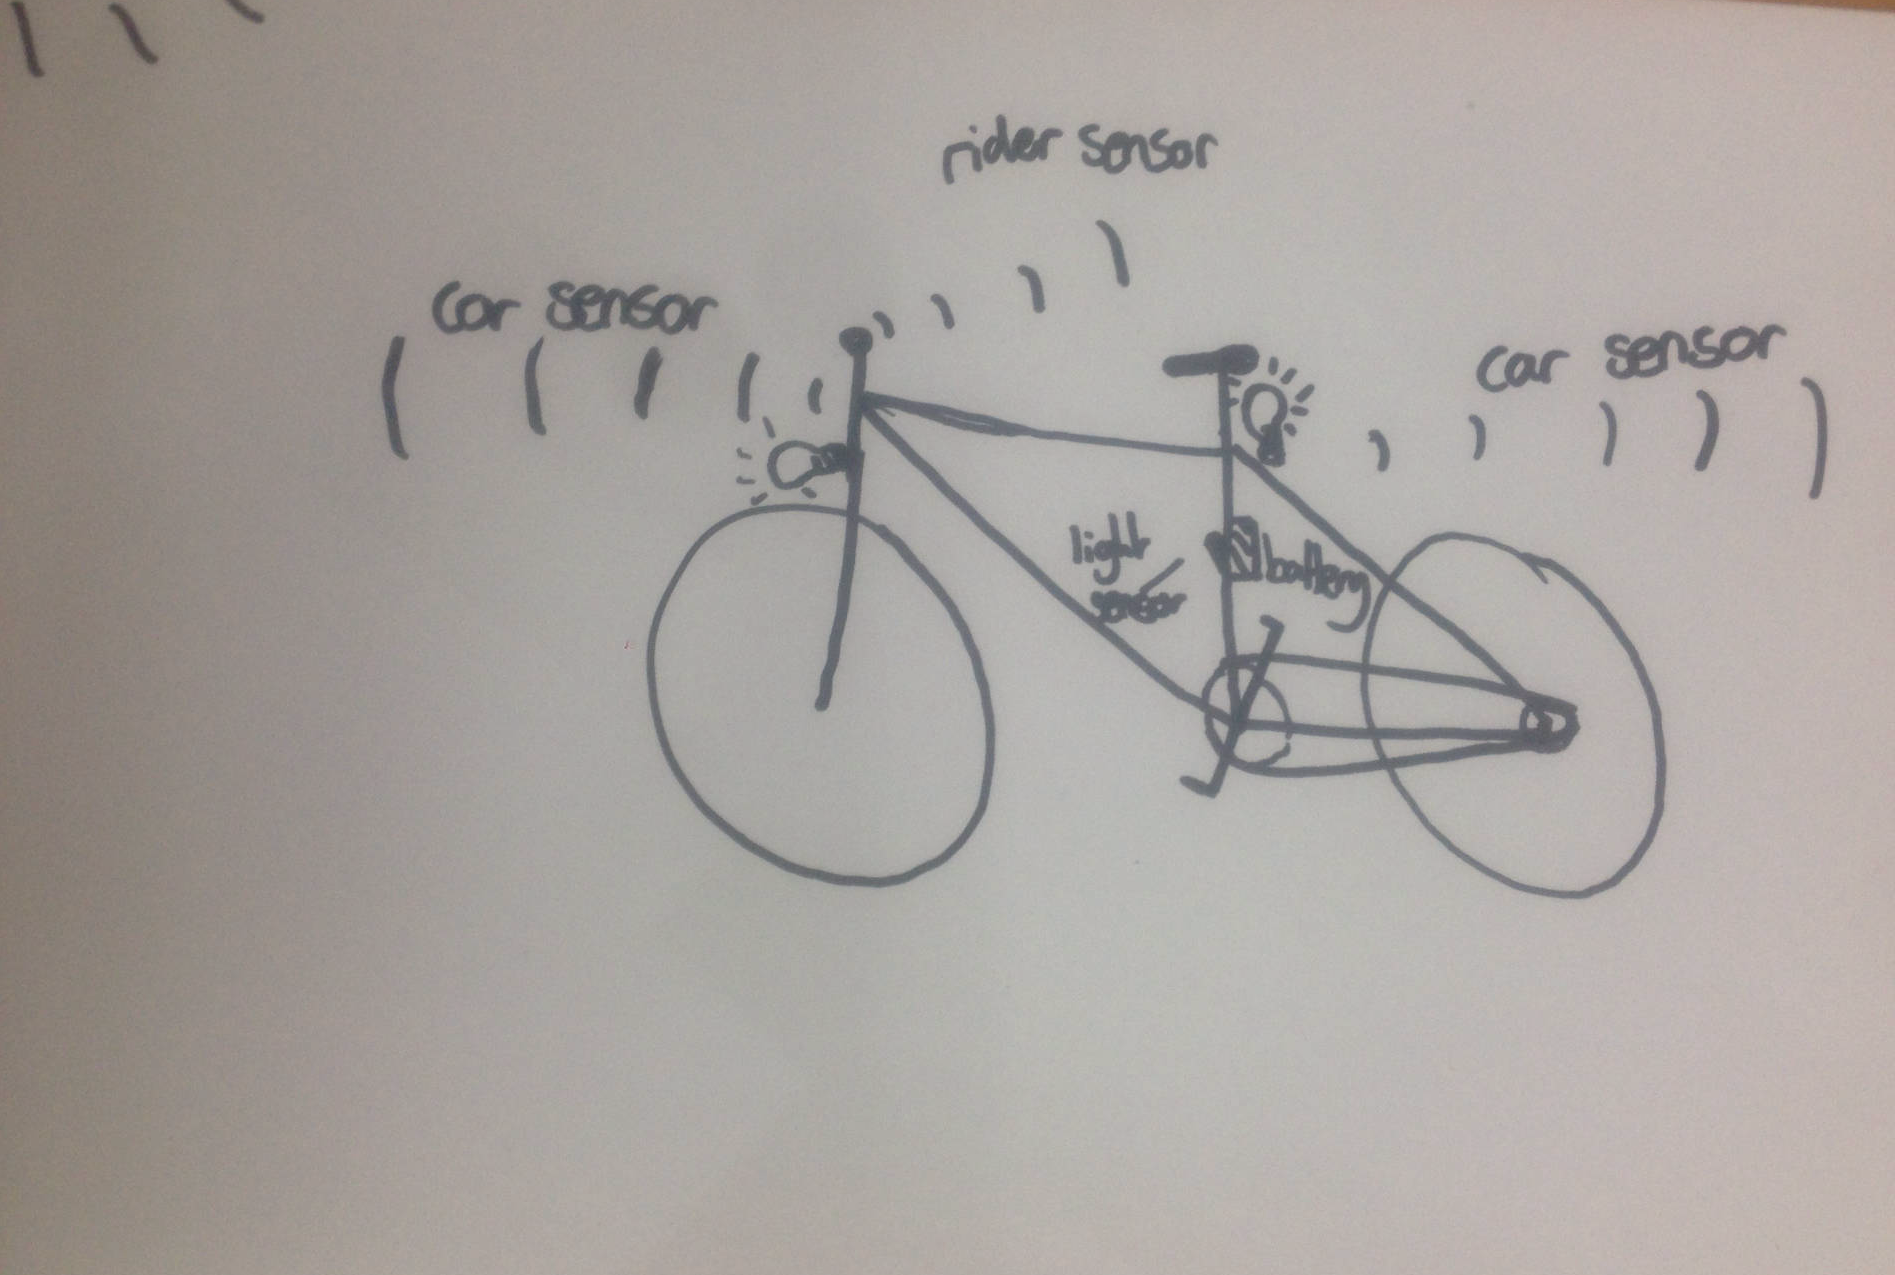 rider sensor
car sensor
car sensor
light
sensor
battery